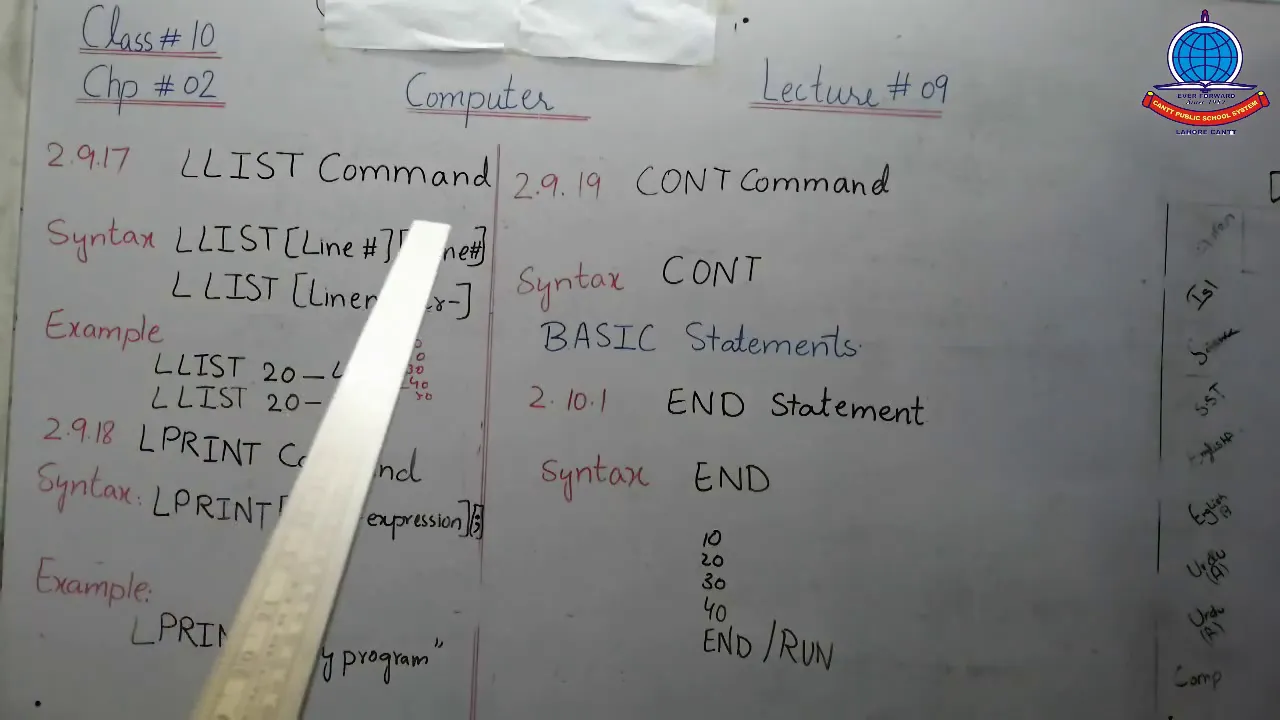 Class # 10
Chp # 02
Computer
Lecture # 09
EVER FORWARD
Since 1957
CANTT PUBLIC SCHOOL SYSTEM
LAHORE CANTT
2.9.17 LLIST Command
Syntax LLIST [Line #] [ ne#]
LLIST [Linen r-]
Example
LLIST 20 –
LLIST 20 –
30
40
50
2.9.18 LPRINT Co nd
Syntax: LPRINT [ expression][;]
Example:
LPRIN y program"
2.9.19 CONT Command
Syntax CONT
BASIC Statements.
2.10.1 END Statement
Syntax END
10
20
30
40
END / RUN
Isl
S.ST
English
English (B)
Urdu (A)
Urdu (B)
Comp